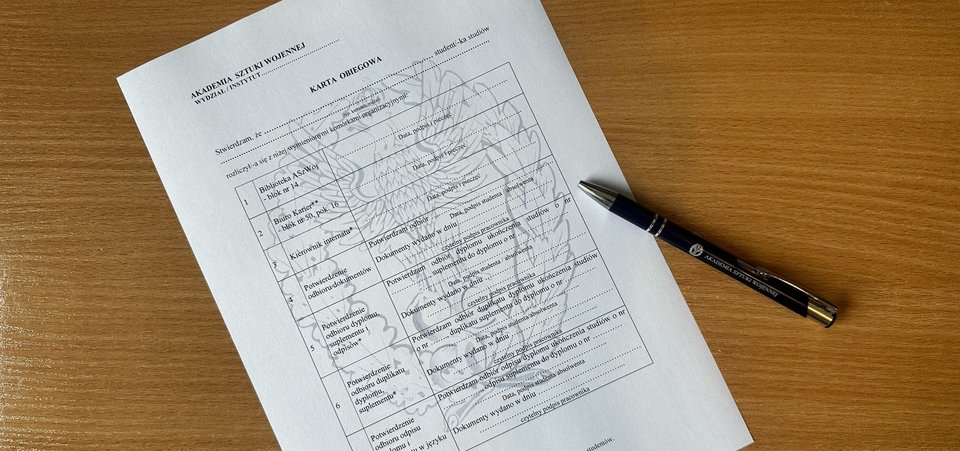 AKADEMIA SZTUKI WOJENNEJ
WYDZIAŁ / INSTYTUT
KARTA OBIEGOWA
Stwierdzam, że student/-ka studiów
rozliczył/-a się z niżej wymienionymi komórkami organizacyjnymi:
1
Biblioteka ASzWoj
- blok nr 14
Data, podpis i pieczęć
2
Biuro Karier**
- blok nr 50, pok. 16
Data, podpis i pieczęć
3
Kierownik internatu*
Data, podpis i pieczęć
4
Potwierdzenie
odbioru dokumentów
Potwierdzam odbiór
Data, podpis studenta / absolwenta
Dokumenty wydano w dniu
czytelny podpis pracownika
5
Potwierdzenie
odbioru dyplomu,
suplementu i
odpisów*
Potwierdzam odbiór dyplomu ukończenia studiów o nr
suplementu do dyplomu o nr
Data, podpis studenta / absolwenta
Dokumenty wydano w dniu
czytelny podpis pracownika
6
Potwierdzenie
odbioru duplikatu
dyplomu,
suplementu*
Potwierdzam odbiór duplikatu dyplomu ukończenia studiów
o nr duplikatu suplementu do dyplomu o nr
Data, podpis studenta / absolwenta
Dokumenty wydano w dniu
czytelny podpis pracownika
Potwierdzenie
odbioru odpisu
dyplomu i
w języku
Potwierdzam odbiór odpisu dyplomu ukończenia studiów o nr
odpisu suplementu do dyplomu o nr
Data, podpis studenta / absolwenta
Dokumenty wydano w dniu
czytelny podpis pracownika
studentów.
AKADEMIA SZTUKI WOJENNEJ